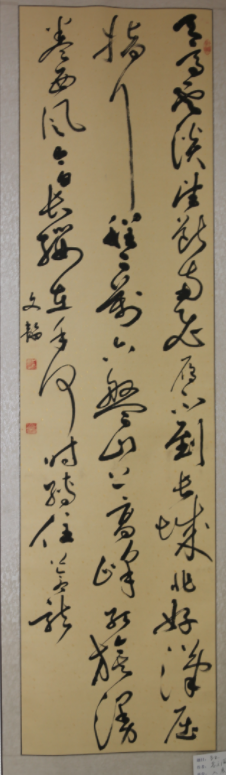 天高云淡望断南飞雁不到长城非好汉屈
指行程二万六盘山上高峰红旗漫
卷西风今日长缨在手何时缚住苍龙
文韬